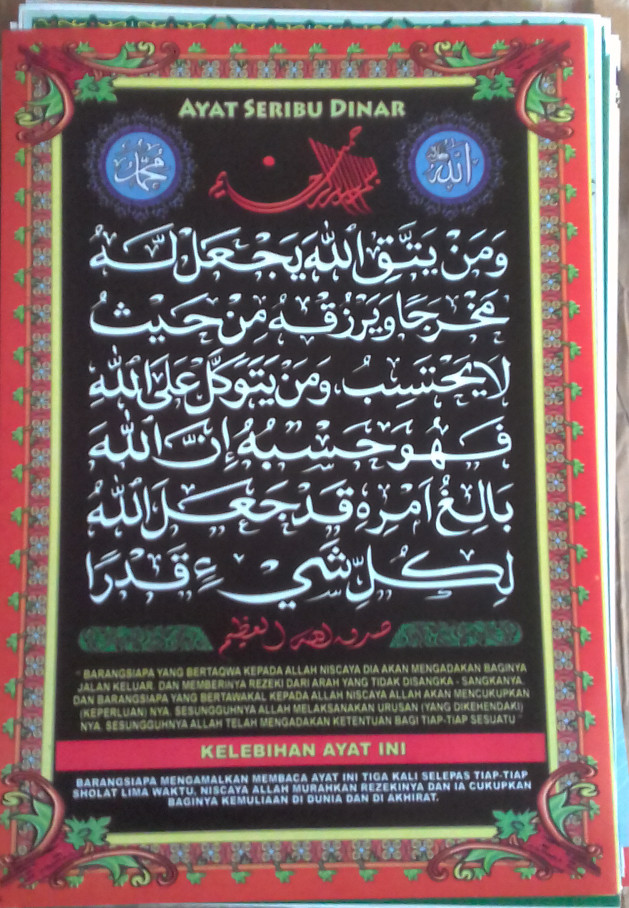 AYAT SERIBU DINAR
محمد
بسم الله الرحمن الرحيم
الله
وَمَنْ يَتَّقِ اللهَ يَجْعَلْ لَّهُ
مَخْرَجًا وَيَرْزُقْهُ مِنْ حَيْثُ
لَا يَحْتَسِبُ، وَمَنْ يَتَوَكَّلْ عَلَى اللهِ
فَهُوَ حَسْبُهُ إِنَّ اللهَ
بَالِغُ اَمْرِهِ قَدْ جَعَلَ اللهُ
لِكُلِّ شَيْءٍ قَدْرًا
صدق الله العظيم
" BARANGSIAPA YANG BERTAQWA KEPADA ALLAH NISCAYA DIA AKAN MENGADAKAN BAGINYA
JALAN KELUAR. DAN MEMBERINYA REZEKI DARI ARAH YANG TIDAK DISANGKA - SANGKANYA.
DAN BARANGSIAPA YANG BERTAWAKAL KEPADA ALLAH NISCAYA ALLAH AKAN MENCUKUPKAN
(KEPERLUAN) NYA. SESUNGGUHNYA ALLAH MELAKSANAKAN URUSAN (YANG DIKEHENDAKI)
NYA. SESUNGGUHNYA ALLAH TELAH MENGADAKAN KETENTUAN BAGI TIAP-TIAP SESUATU "
KELEBIHAN AYAT INI
BARANGSIAPA MENGAMALKAN MEMBACA AYAT INI TIGA KALI SELEPAS TIAP-TIAP
SHOLAT LIMA WAKTU, NISCAYA ALLAH MURAHKAN REZEKINYA DAN IA CUKUPKAN
BAGINYA KEMULIAAN DI DUNIA DAN DI AKHIRAT.